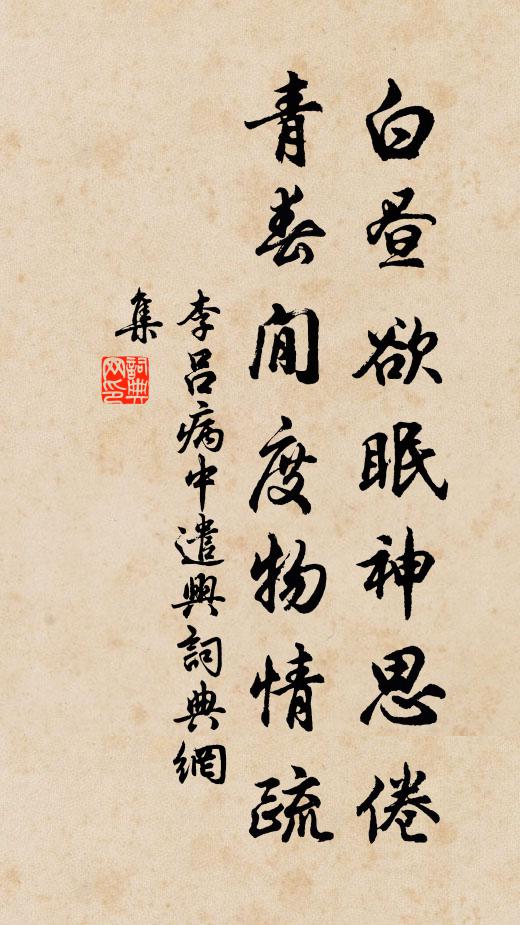 白昼欲眠神思倦
青春閒度物情疏
李呂病中遣興詞典網
集
詞典
网印